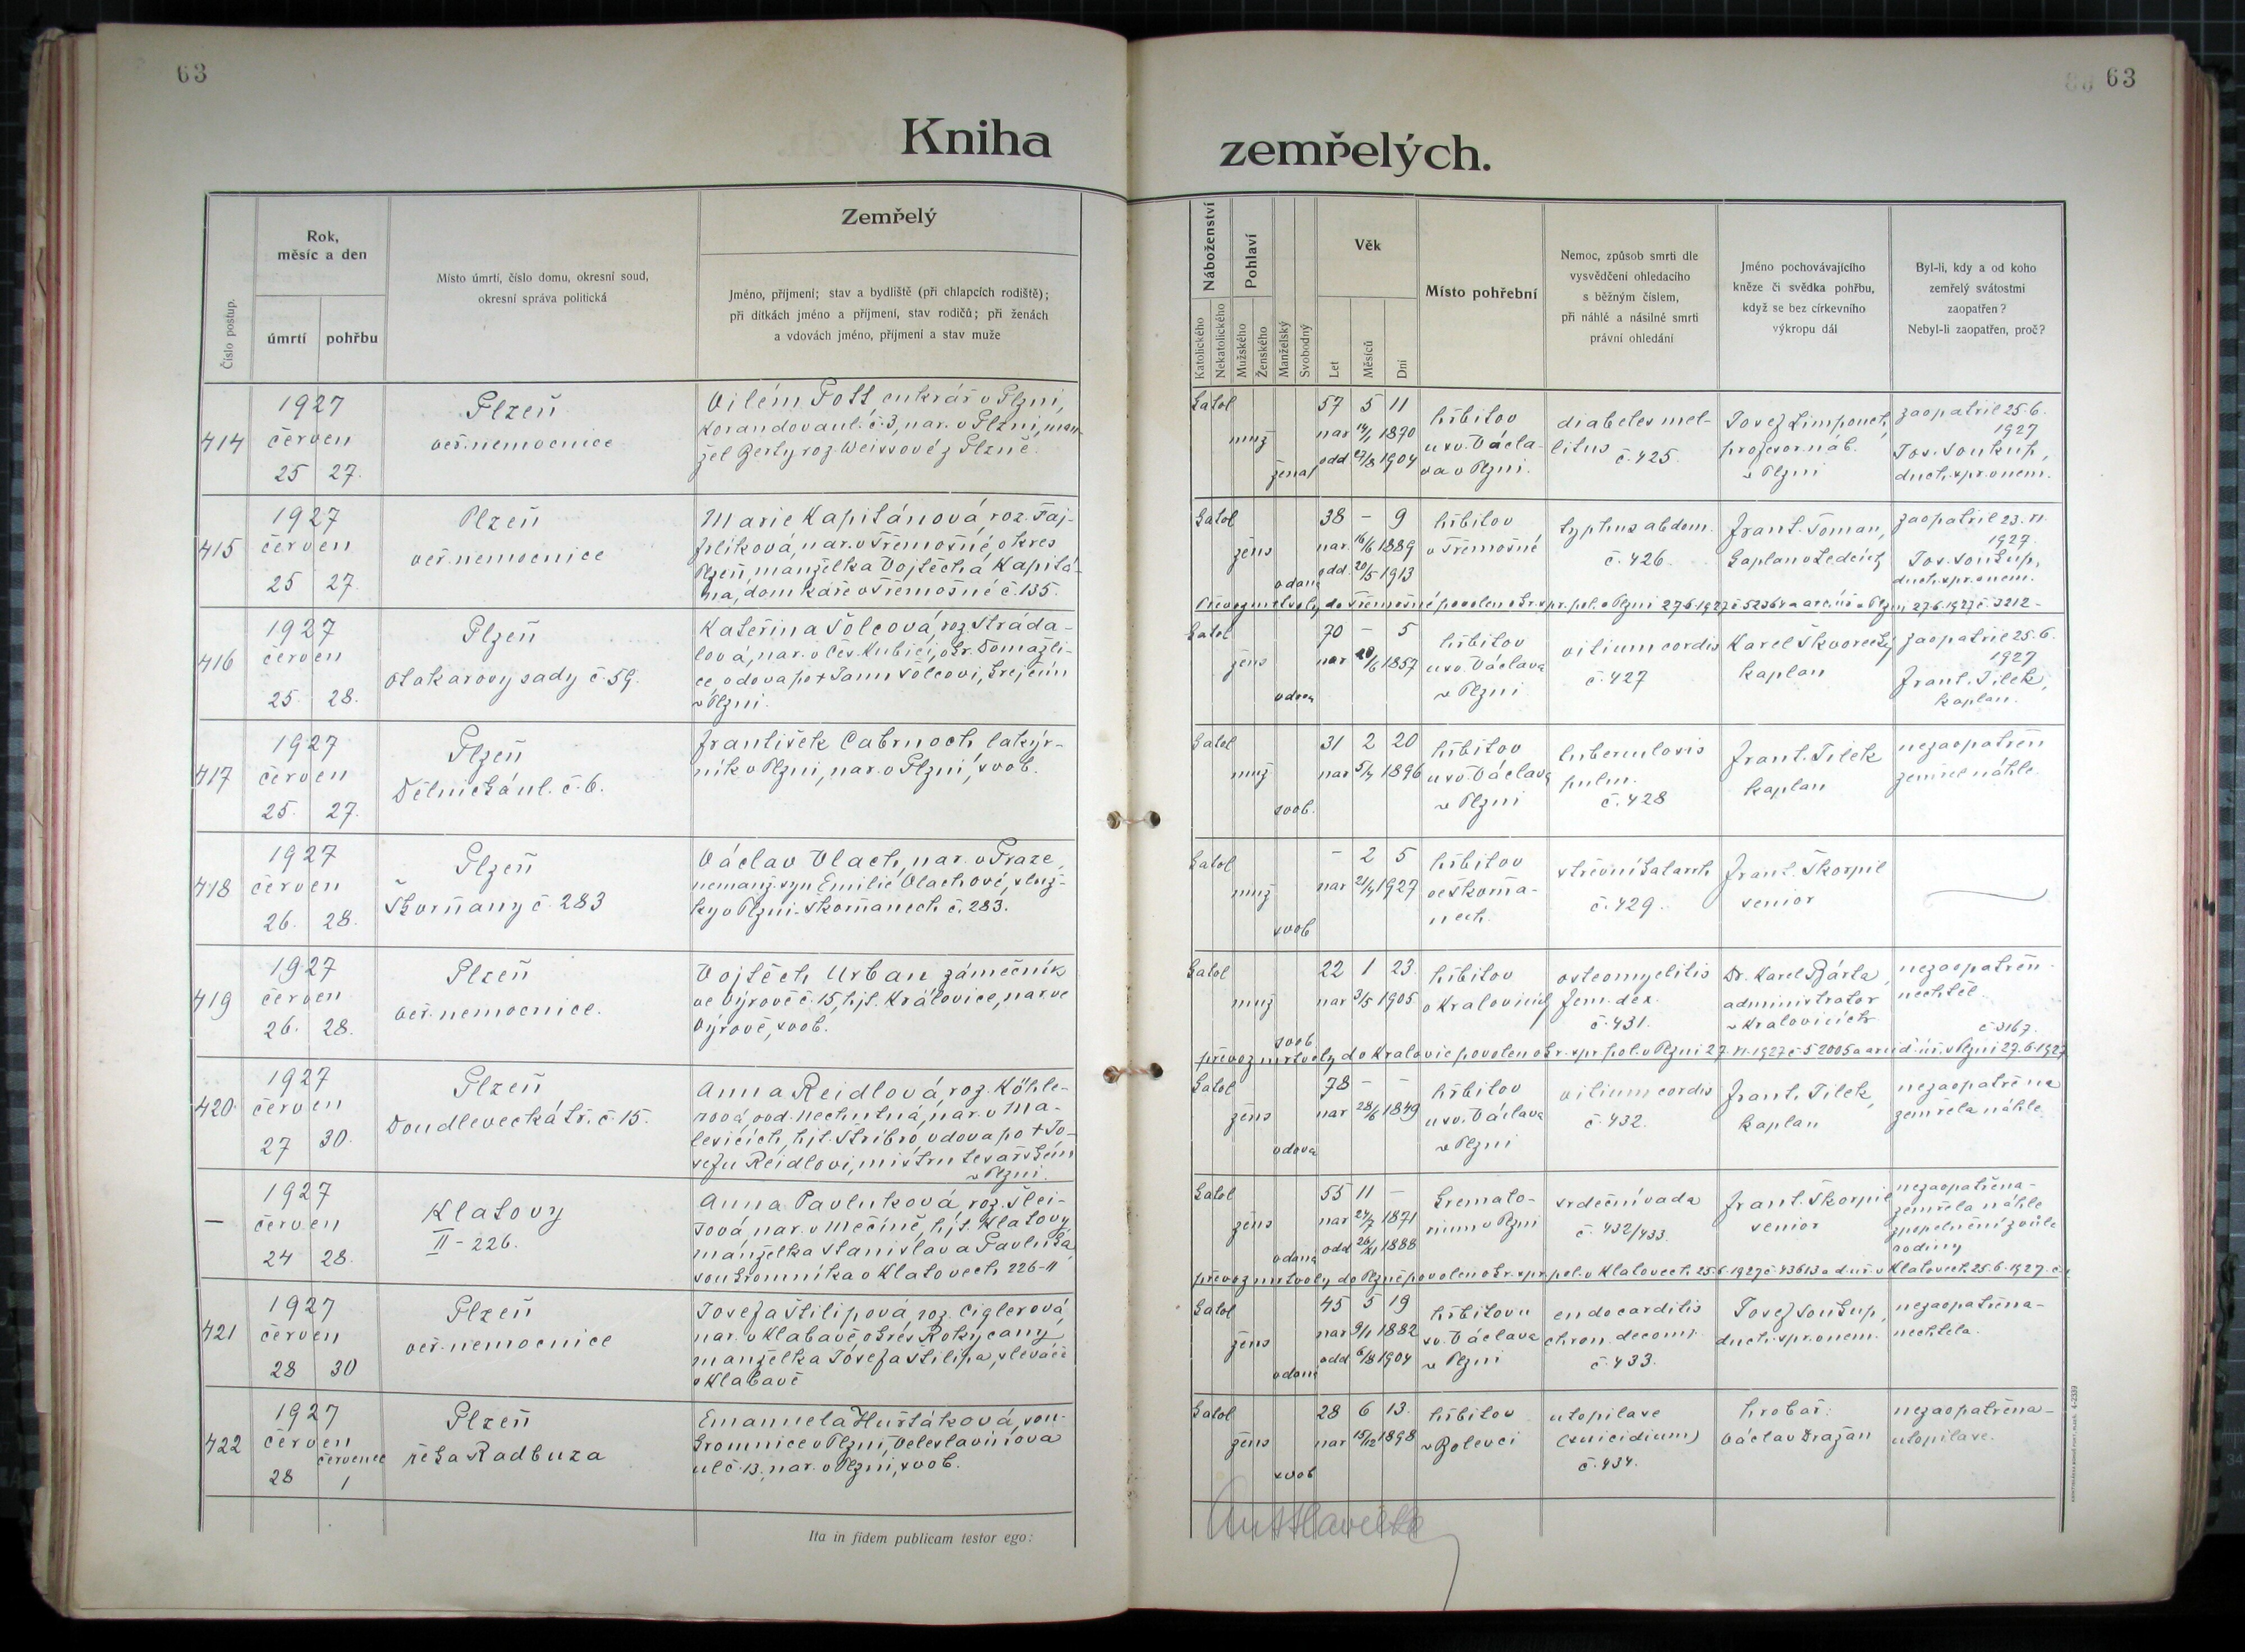 63
63
Kniha
zemřelých.
Číslo postup.
Rok,
měsíc a den
úmrtí
pohřbu
Místo úmrtí, číslo domu, okresní soud,
okresní správa politická
Zemřelý
Jméno, příjmení; stav a bydliště (při chlapcích rodiště);
při dítkách jméno a příjmení, stav rodičů; při ženách
a vdovách jméno, příjmení a stav muže
Náboženství
Katolického
Nekatolického
Pohlaví
Mužského
Ženského
Manželský
Svobodný
Věk
Let
Měsíců
Dní
Místo pohřební
Nemoc, způsob smrti dle
vysvědčení ohledacího
s běžným číslem,
při náhlé a násilné smrti
právní ohledání
Jméno pochovávajícího
kněze či svědka pohřbu,
když se bez církevního
výkropu dál
Byl-li, kdy a od koho
zemřelý svátostmi
zaopatřen?
Nebyl-li zaopatřen, proč?
414
1927
červen
25 27.
Plzeň
veř. nemocnice
Vilém Pott, cukrář v Plzni,
Korandova ul. č. 3, nar. v Plzni, man-
žel Berty roz. Weissové z Plzně.
katol
muž
ženat
57 5 11
nar 14/1 1870
odd 27/8 1904
hřbitov
u sv. Václa-
va v Plzni.
diabetes mel-
litus
č. 425.
Josef Limpouch,
profesor náb.
v Plzni
zaopatřil 25. 6.
1927
Jos. Soukup,
duch. spr. v nem.
415
1927
červen
25 27.
Plzeň
veř. nemocnice
Marie Kapitánová roz. Taj-
nar. v Třemošné, okres
Plzeň, manželka Vojtěcha Kapitá-
na, domkáře v Třemošné č. 135.
katol
žens
vdaná
38 - 9
nar. 16/6 1889
odd. 20/5 1913
hřbitov
v Třemošné
typhus abdom.
č. 426.
Frant. Toman,
kaplan v Ledcích
zaopatřil 23. VI.
1927.
Jos. Soukup,
duch. spr. v nem.
Převoz mrtvoly do Třemošné povolen okr. spr. pol. v Plzni 27.6.1927 č. v Plzni 27.6.1927 č. 3212-
416
1927
červen
25 28.
Plzeň
Otakarovy sady č. 59.
Kateřina Šolcová, roz. Stráda-
lová, nar. v Čes. Kubici, okr. Domažli-
ce, vdova po † Janu Šolcovi, krejčím
v Plzni.
katol
žens
vdova
70 - 5
nar 20/6 1857
hřbitov
u sv. Václava
v Plzni
vitium cordis
č. 427
Karel Škvorecký
kaplan
zaopatřil 25. 6.
1927
Frant. Jilek,
kaplan.
417
1927
červen
25. 27.
Plzeň
Dělnická ul. č. 6.
František Cabrnoch, lakýr-
ník v Plzni, nar. v Plzni, svob.
katol
muž
svob.
31 2 20
nar 5/4 1896
hřbitov
u sv. Václava
v Plzni
tuberculosis
pulm.
č. 428
Frant. Jilek
kaplan
nezaopatřen
zemřel náhle.
418
1927
červen
26. 28.
Plzeň
Škvrňany č. 283
Václav Vlach, nar. v Praze,
nemanž. syn Emilie Vlachové, služ-
ky v Plzni-Škvrňanech č. 283.
katol
muž
svob
- 2 5
nar 21/4 1927
hřbitov
ve Škvrňa-
nech.
střevní katarh
č. 429.
Frant. Škorpil
senior
419
1927
červen
26. 28.
Plzeň
veř. nemocnice.
Vojtěch Urban, zámečník
ve Výrově č. 15, hjt. Kralovice, nar. ve
Výrově, svob.
katol
muž
svob
22 1 23.
nar 3/5 1905
hřbitov
v Kralovicích
osteomyelitis
fem. dex.
č. 431.
Dr. Karel Bárta,
administrator
v Kralovicích
nezaopatřen
nechtěl.
č. 3167.
převoz mrtvoly do Kralovic povolen okr. spr. pol. v Plzni 27. VI. 1927 č. 52005 a arcid. úř. v Plzni 27. 6. 1927
420.
1927
červen
27 30.
Plzeň
Doudlevecká tř. č. 15.
Anna Reidlová, roz. Köhle-
rová, ovd. Nechutná, nar. v Ma-
lesicích, hjt. Stříbro, vdova po † Jo-
sefu Reidlovi, mistru tesařském
v Plzni.
katol
žens
vdova
78 - -
nar 28/6 1849
hřbitov
u sv. Václava
v Plzni
vitium cordis
č. 432.
Frant. Jilek,
kaplan
nezaopatřena
zemřela náhle
-
1927
červen
24 28.
Klatovy
II - 226.
Anna Pavluková, roz. Šlei-
sová, nar. v Mečíně, hjt. Klatovy,
manželka Stanislava Pavluka,
soukromníka v Klatovech 226-II
katol
žens
vdaná
55 11 -
nar 24/7 1871
odd 26/XI 1888
kremato-
rium v Plzni
srdeční vada
č. 432/433.
Frant. Škorpil
senior
nezaopatřena-
zemřela náhle
zpopelnění z vůle
rodiny
převoz mrtvoly do Plzně povolen okr. spr. pol. v Klatovech 25. 6. 1927 č. 43613 a d. úř. v Klatovech 25. 6. 1927. č.
421
1927
červen
28 30
Plzeň
veř. nemocnice
Josefa Štilipová, roz. Ciglerová,
nar. v Klabavě, okres Rokycany,
manželka Josefa Štilipa, slévače
v Klabavě
katol
žens
vdaná
45 5 19
nar 9/1 1882
odd 6/8 1904
hřbitov u
sv. Václava
v Plzni
endocarditis
chron. decomp.
č. 433.
Josef Soukup,
duch. spr. v nem.
nezaopatřena-
nechtěla.
422
1927
červen
červenec
28 1
Plzeň
řeka Radbuza
Emanuela Huřťáková, sou-
kromnice v Plzni, Veleslavínova
ul č. 13, nar. v Plzni, svob.
katol
žens
svob
28 6 13.
nar 15/12 1898
hřbitov
v Bolevci
utopila se
(suicidium)
č. 434.
hrobař:
Václav Dražan
nezaopatřena-
utopila se.
Ita in fidem publicam testor ego: